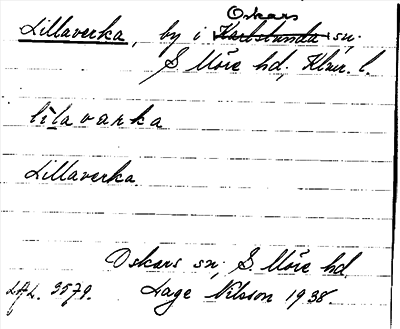 Oskars
Lillaverka, by i Karlslunda sn.
S Möre hd, Klmr. l.
lilavarka
Lillaverka.
Oskars sn, S. Möre hd.
LAL. 3579. Lage Nilsson 1938.